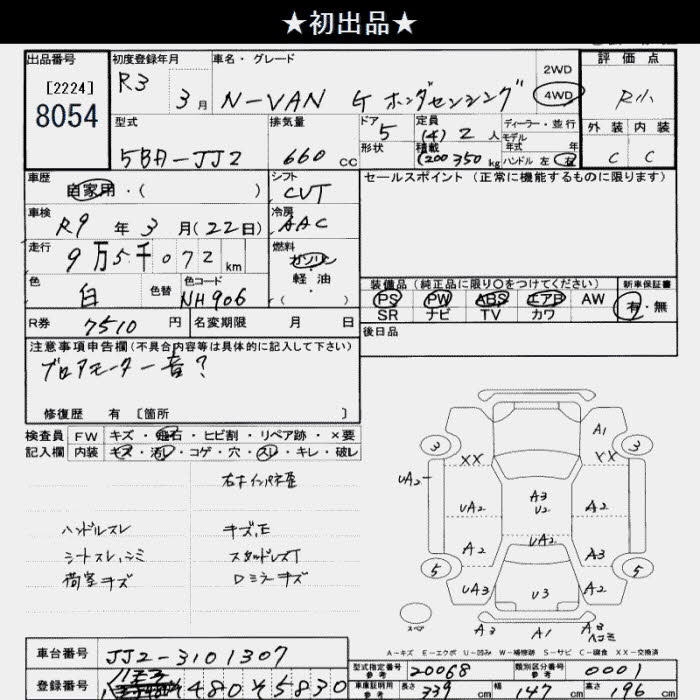 ★初出品★
出品番号
[2224]
8054
初度登録年月
R3 3月
車名・グレード
N-VAN G ホンダセンシング
2WD
4WD
評価点
R小
型式
5BA-JJ2
排気量
660 cc
ドア
5
形状
定員
(4) 2 人
積載
(200) 350 kg
ディーラー・並行
モデル
年式 年
ハンドル 左 右
外装 内装
C C
車歴
自家用・( )
シフト
CVT
セールスポイント (正常に機能するものに限ります)
車検
R9 年 3 月(22日)
冷房
AAC
走行
9万5千072 km
燃料
ガソリン
軽油
( )
色
白
色替
色コード
NH906
装備品 (純正品に限り○をつけてください)
新車保証書
PS PW ABS エアB AW
有・無
SR ナビ TV カワ
R券 7510 円
名変期限 月 日
後日品
注意事項申告欄(不具合内容等は具体的に記入して下さい)
ブロアモーター音?
修復歴 有 [箇所 ]
検査員 FW キズ・飛石・ヒビ割・リペア跡・×要
記入欄 内装 キズ・汚レ・コゲ・穴・スレ・キレ・破レ
右インパネ歪
ハンドルスレ キズ,E
シートスレ,シミ スタッドレスT
荷室キズ ロミラーキズ
A1
3 3
XX XX
UA2
UA2 A3 A2
U2
A2 UA2 A3
5 5
UA3 U3 A2
スペア
A3 A1 A3
A-キズ E-エクボ U-凹み W-補修跡 S-サビ C-腐食 XX-交換済
車台番号 JJ2-3101307
登録番号 480 45830
型式指定番号 参考 20068
類別区分番号 参考 0001
車庫証明用 参考 長さ 339 cm 幅 147 cm 高さ 196 cm